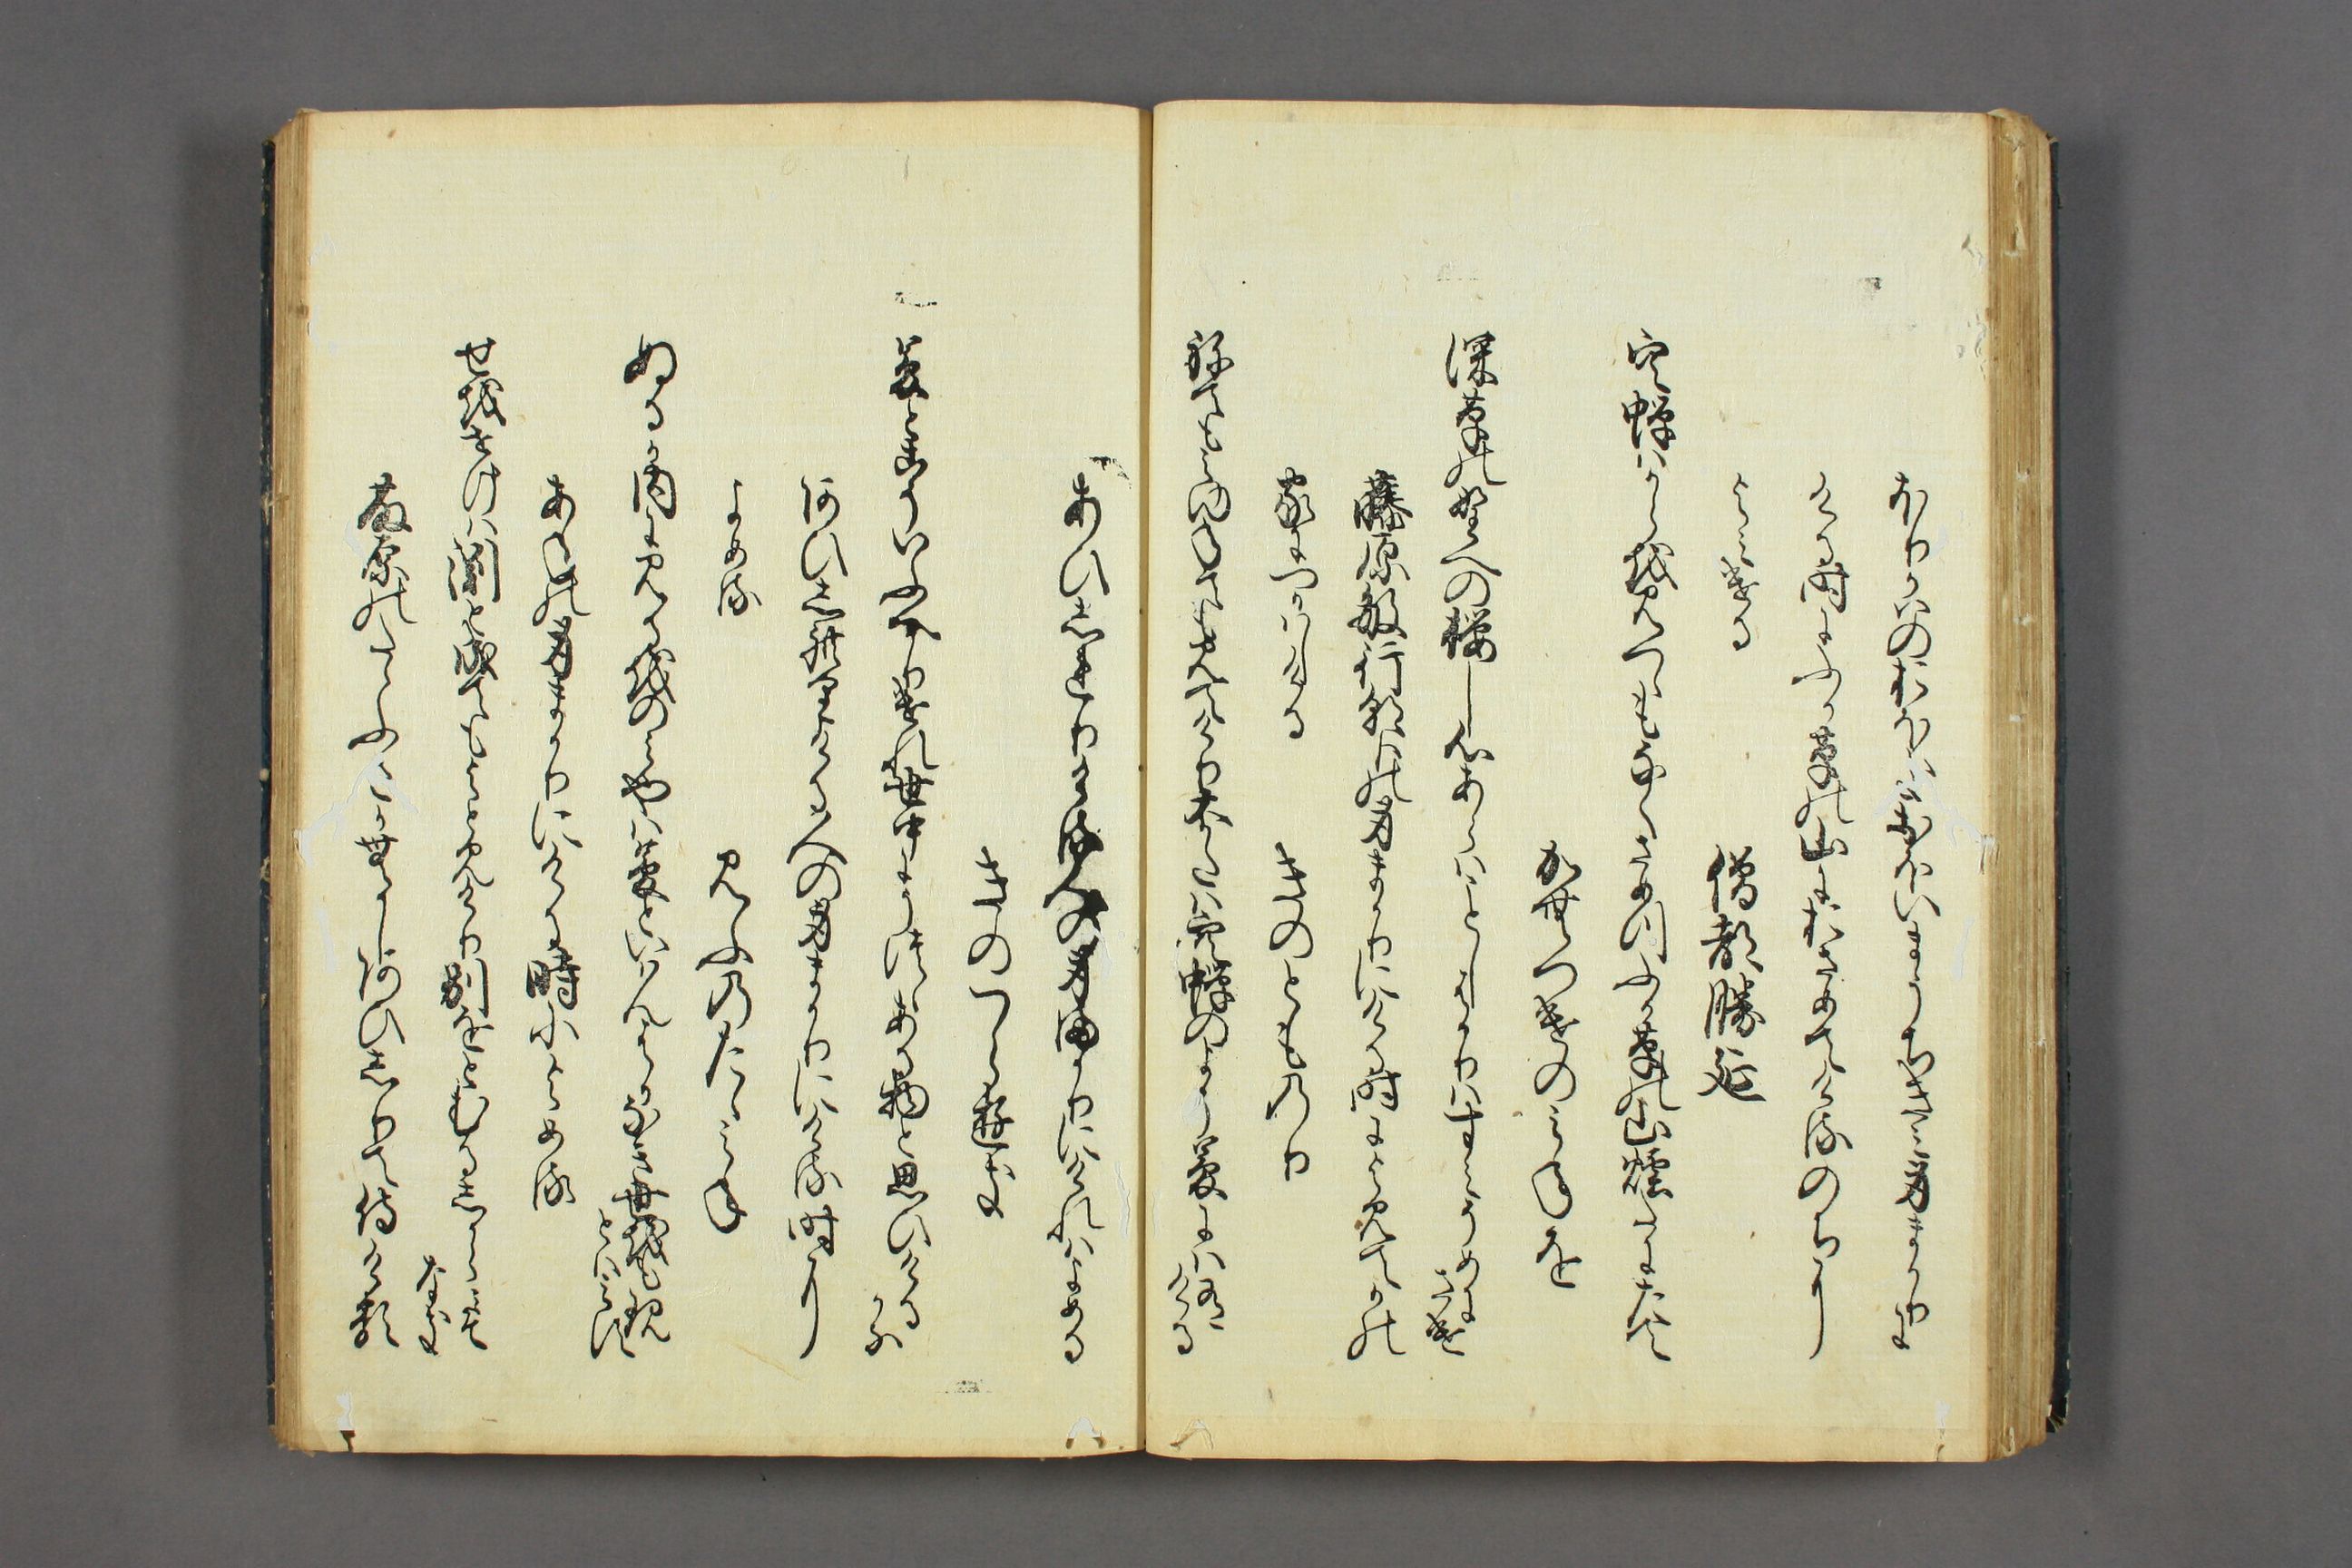 ほりかはのおほきおほいまうち君身まかり
にける時にふか草の山におさめてける後に
よみける
僧都勝延
空蝉はからを見つゝもなくさめつふか草の山煙たにたて
かむつけのみねを
深草の野への桜し心あらはことしはかりはすみそめにさけ
藤原敏行朝臣の身まかりにける時によみてかの
家につかはしける
きのとものり
ねても見ゆねても見えけり大かたは空蝉の世そ夢には有ける
あひしれりける人の身まかりにけれはよめる
きのつらゆき
夢とこそいふへかりけれ世中にうつゝある物と思ひけるかな
あひしれりける人の身まかりにける時に
よめる
みふのたゝみね
ぬるか内に見るをのみやは夢といはんはかなき世をもうつゝとはみす
あねの身まかりにける時によめる
せをせけは淵と成てもよとみけり別をとむるしからみそなき
藤原のたゝふさかむかしあひしりて侍ける